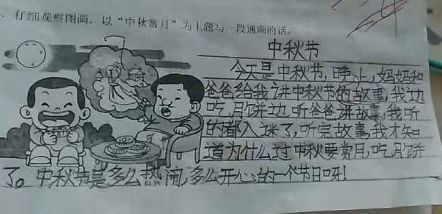 仔细观察图画，以“中秋赏月”为主题写一段通顺的话。
中秋节
今天是中秋节，晚上，妈妈和
爸爸给我讲中秋节的故事，我边
吃月饼边听爸爸讲故事，我听
的都入迷了，听完故事，我才知
道为什么过中秋要赏月，吃月饼
了。中秋节是多么热闹，多么开心的一个节日呀！